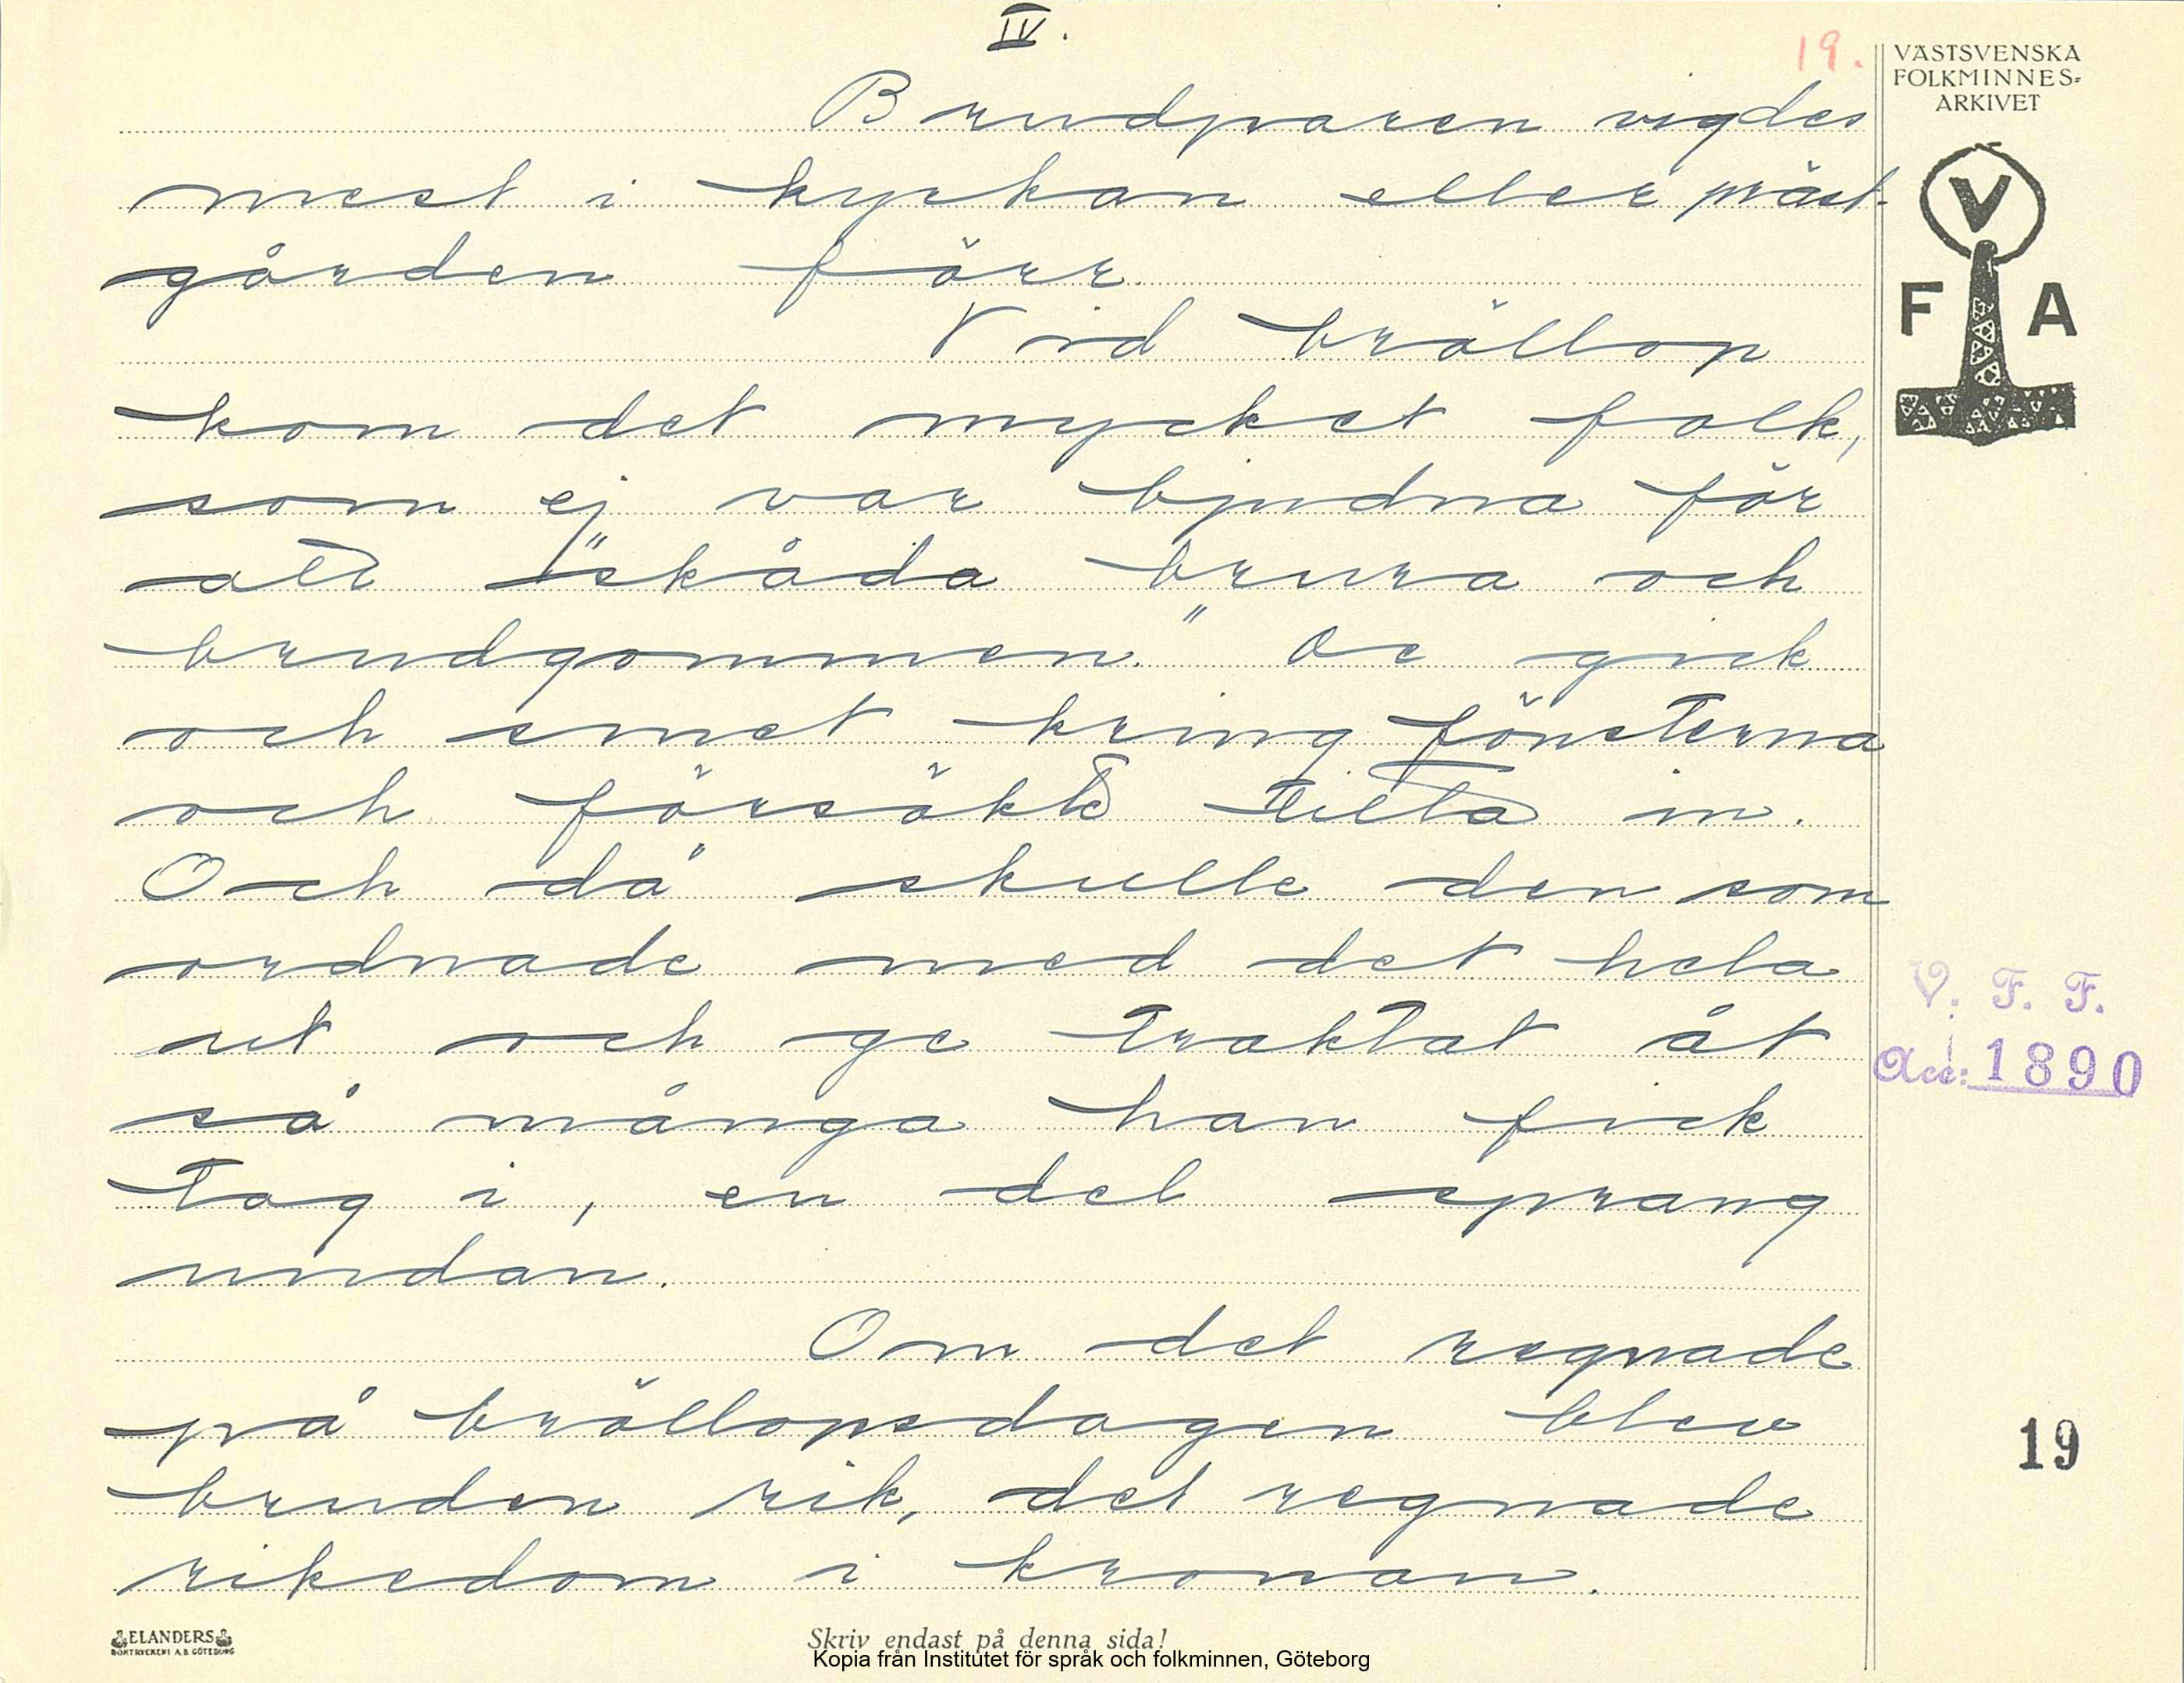 IV.
19.
VÄSTSVENSKA
FOLKMINNES=
ARKIVET
V
F A
Brudparen vigdes
mest i kyrkan eller präst-
gården förr.
Vid bröllop
kom det mycket folk,
som ej var bjudna för
att "skåda brura och
brudgommen." De gick
och smet kring fönsterna
och försökte titta in.
Och då skulle den som
ordnade med det hela
ut och ge traktat åt
så många han fick
tag i, en del sprang
undan.
Om det regnade
på bröllopsdagen blev
bruden rik, det regnade
rikedom i kronan.
V. F. F.
Acc: 1890
19
ELANDERS
BOKTRYCKERI A.B. GÖTEBORG
Skriv endast på denna sida!
Kopia från Institutet för språk och folkminnen, Göteborg